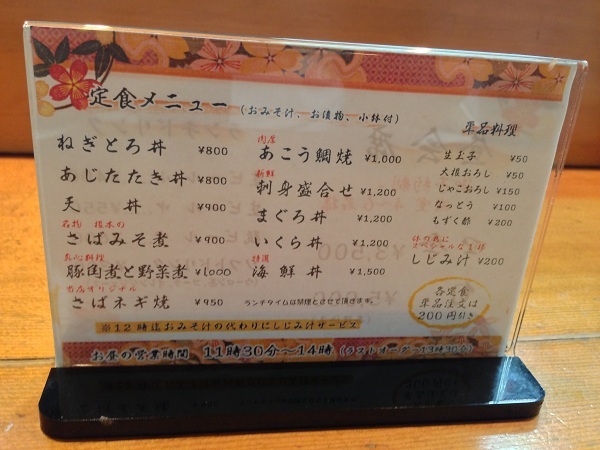 定食メニュー (おみそ汁、お漬物、小鉢付)
ねぎとろ丼 ¥800
あじたたき丼 ¥800
天 丼 ¥900
名物 根本の
さばみそ煮 ¥900
真心料理
豚角煮と野菜煮 ¥1000
当店オリジナル
さばネギ焼 ¥950
肉厚
あこう鯛焼 ¥1,000
新鮮
刺身盛合せ ¥1,200
まぐろ丼 ¥1,200
いくら丼 ¥1,200
特選
海鮮丼 ¥1,500
ランチタイムは禁煙とさせて頂きます。
単品料理
生玉子 ¥50
大根おろし ¥50
じゃこおろし ¥150
なっとう ¥100
もずく酢 ¥200
体の為に
スペシャルな1杯
しじみ汁 ¥200
各定食
単品注文は
200円引き
※12時迄おみそ汁の代わりにしじみ汁サービス
お昼の営業時間 11時30分~14時 (ラストオーダー13時30分)